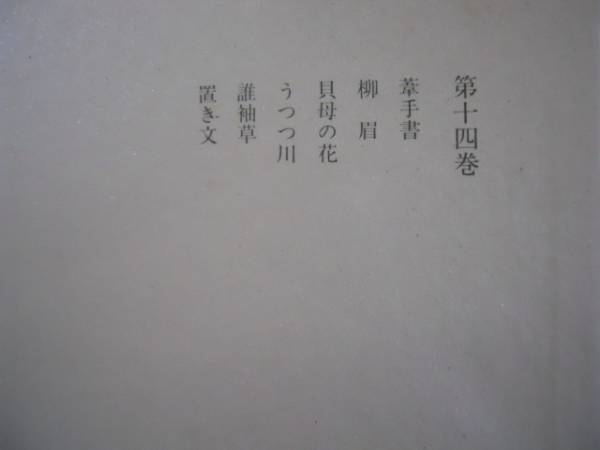 第十四巻
葦手書
柳眉
貝母の花
うつつ川
誰袖草
置き文